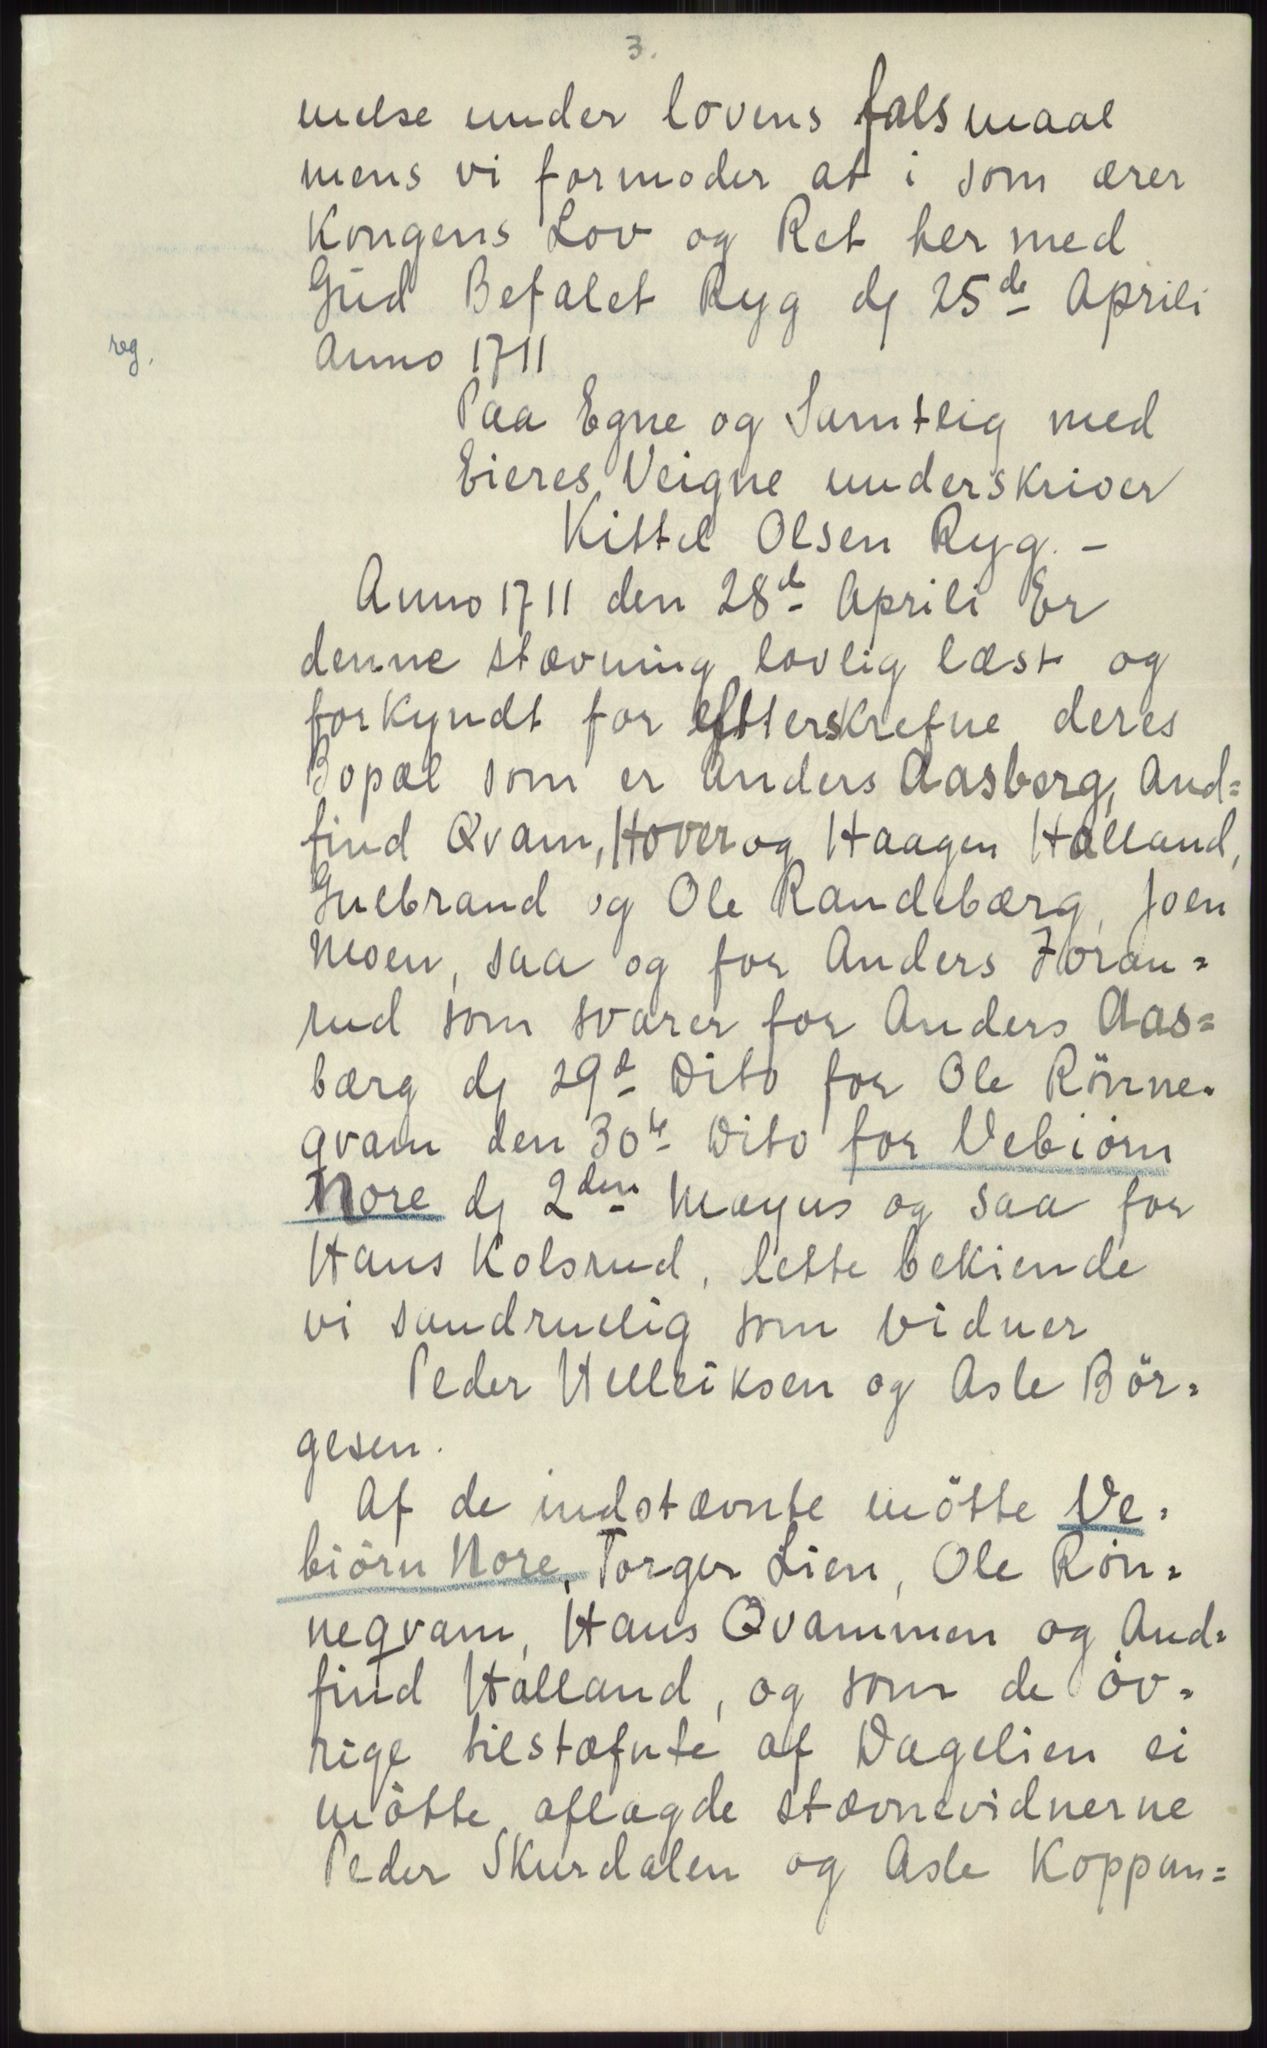 3.
melse under lovens falsmaal
mens vi formoder at i som ærer
Kongens Lov og Ret her med
Gud Befalet Ryg dj 25de Aprili
reg.
Anno 1711
Paa Egne og Samtlig med
Eieres Veigne underskriver
Kittel Olsen Ryg. -
Anno 1711 den 28d Aprili Er
denne stævning lovlig læst og
forkyndt for efterskrefne deres
Bopæl som er Anders Aasberg, And=
find Qvam, Hover og Haagen Halland,
Gulbrand og Ole Randebærg, Joen
Moen, saa og for Anders Foran=
rud som svarer for Anders Aas=
bærg dj 29d Dito for Ole Rönne=
qvam den 30te Dito for Vebiörn
Nore dj 2den Mayus og saa for
Hans Kolsrud, lette bekiende
vi sandruelig som vidner
Peder Hellriksen og Asle Bör=
gesen.
Af de indstævnte mötte Ve=
biörn Nore, Torger Lien, Ole Rön=
neqvam, Hans Qvammen og And=
find Halland, og som de öv=
rige tilstæfnte af Dagelien ei
mötte aflagde stævnevidnerne
Peder Skurdalen og Asle Koppan=